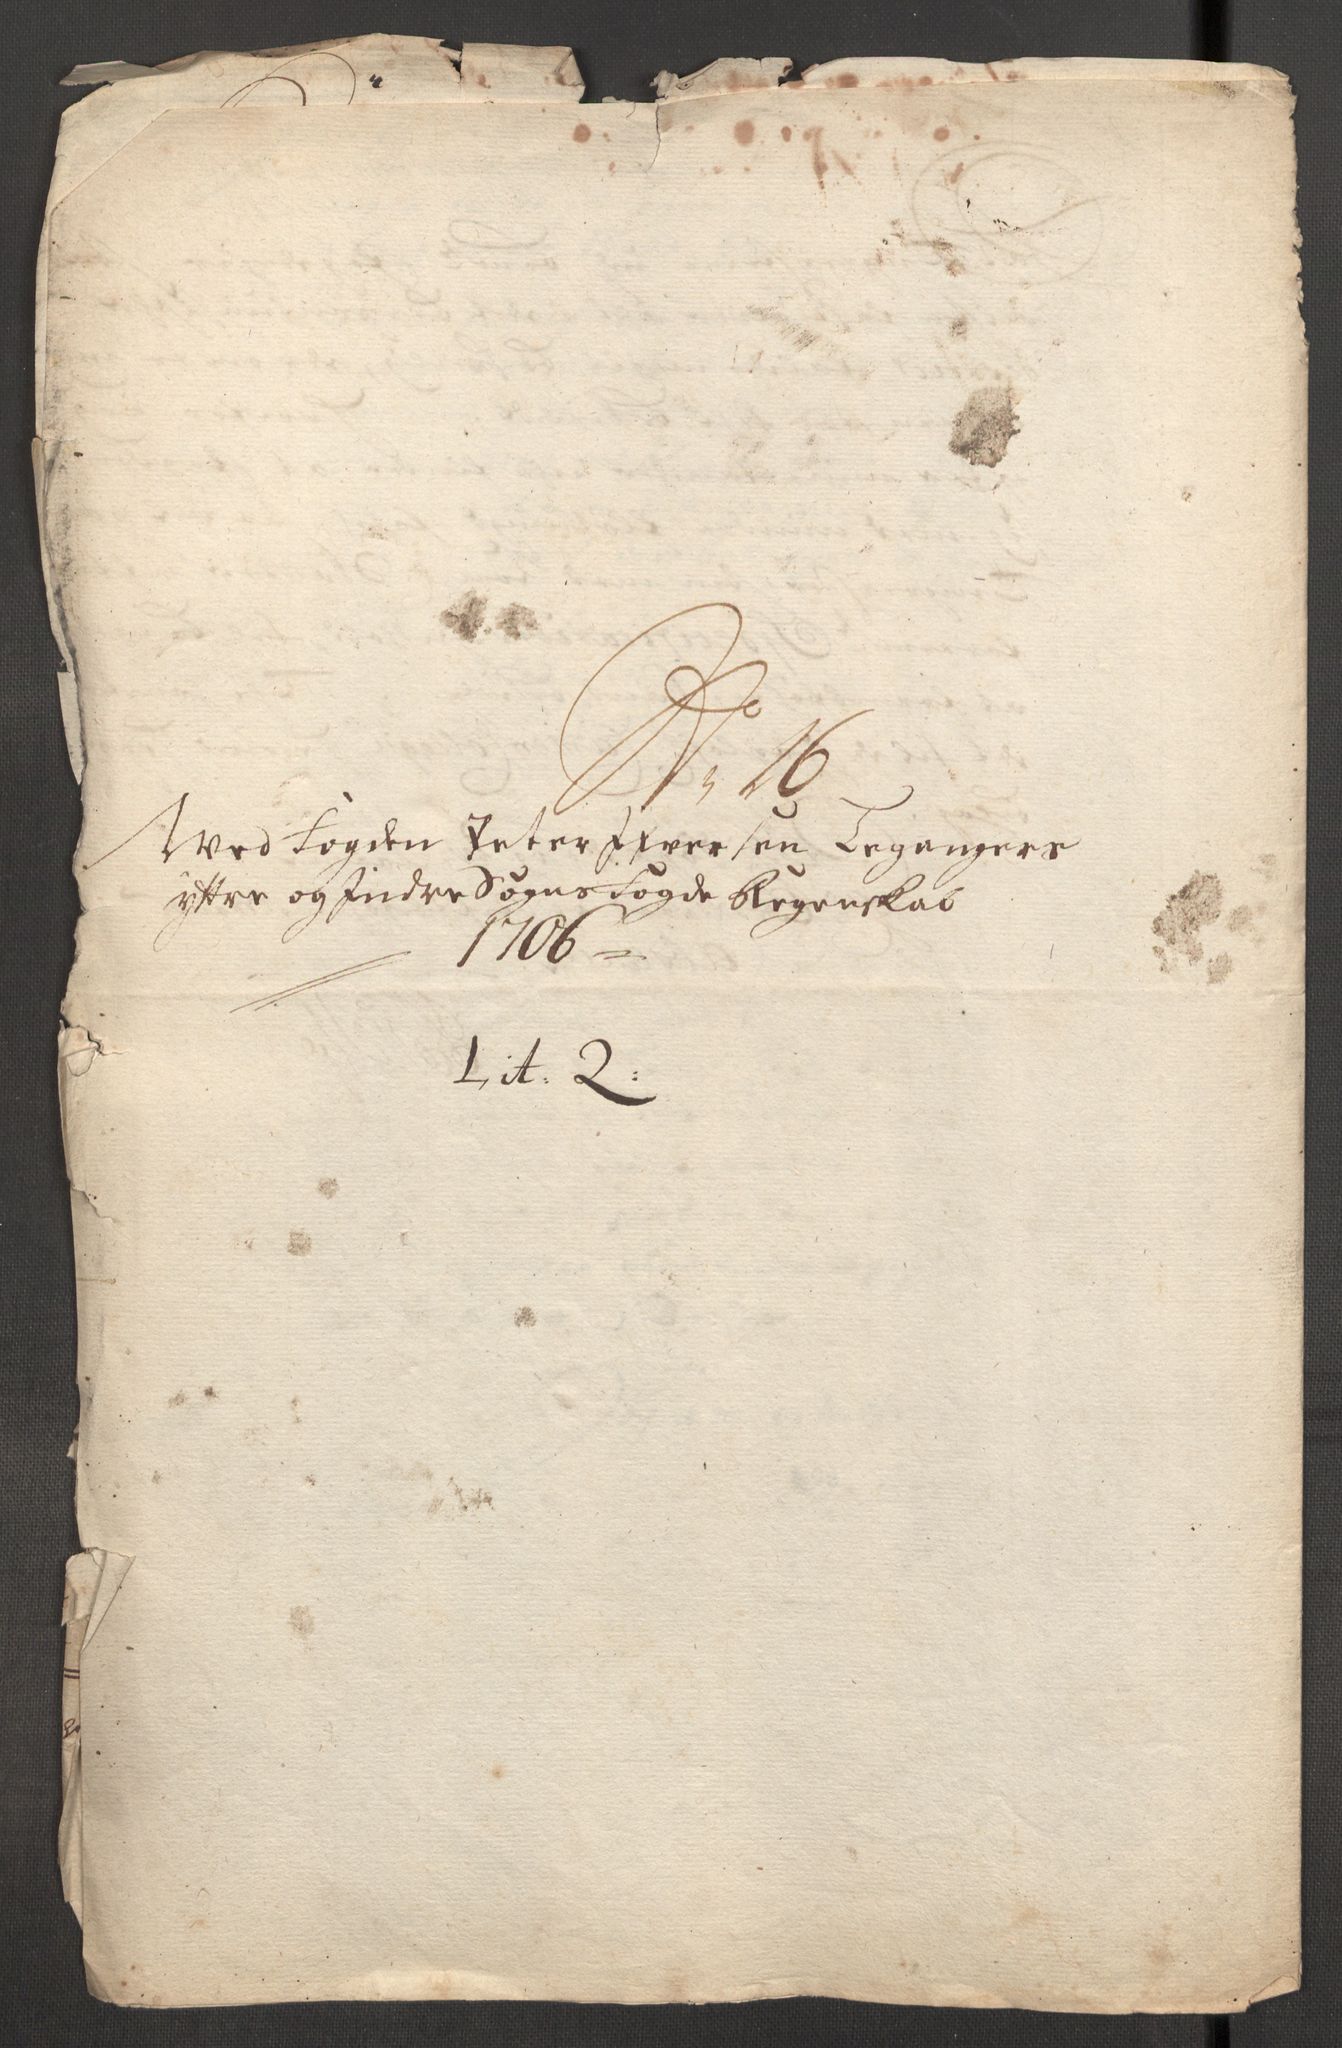 No 16
Wed Fogden Peter Ifwersen Legangers
yttre og Indre Sogns Fogde Regenskab
1706
Lit: 2: